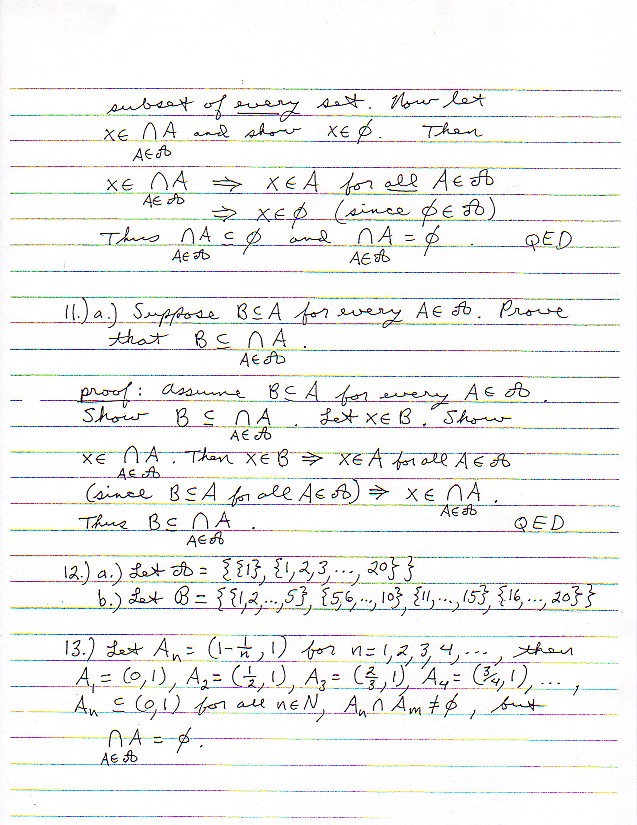 subset of every set. Now let
x∈ ⋂A and show x∈ ∅. Then
A∈𝒜
x∈ ⋂A ⇒ x∈A for all A∈𝒜
A∈𝒜
⇒ x∈∅ (since ∅∈𝒜)
Thus ⋂A ⊆ ∅ and ⋂A = ∅. QED
A∈𝒜 A∈𝒜
11.) a.) Suppose B⊆A for every A∈𝒜. Prove
that B⊆ ⋂A.
A∈𝒜
proof: Assume B⊆A for every A∈𝒜.
Show B⊆ ⋂A. Let x∈B. Show
A∈𝒜
x∈ ⋂A. Then x∈B ⇒ x∈A for all A∈𝒜
A∈𝒜
(since B⊆A for all A∈𝒜) ⇒ x∈ ⋂A.
A∈𝒜
Thus B⊆ ⋂A. QED
A∈𝒜
12.) a.) Let 𝒜 = {{1}, {1,2,3,...,20}}
b.) Let ℬ = {{1,2,...,5}, {5,6,...,10}, {11,...,15}, {16,...,20}}
13.) Let Aₙ = (1-1/n, 1) for n=1,2,3,4,..., then
A₁ = (0,1), A₂ = (1/2,1), A₃ = (2/3,1), A₄ = (3/4,1), ...,
Aₙ ⊆ (0,1) for all n∈N, Aₙ∩Aₘ≠∅, but
⋂A = ∅.
A∈𝒜